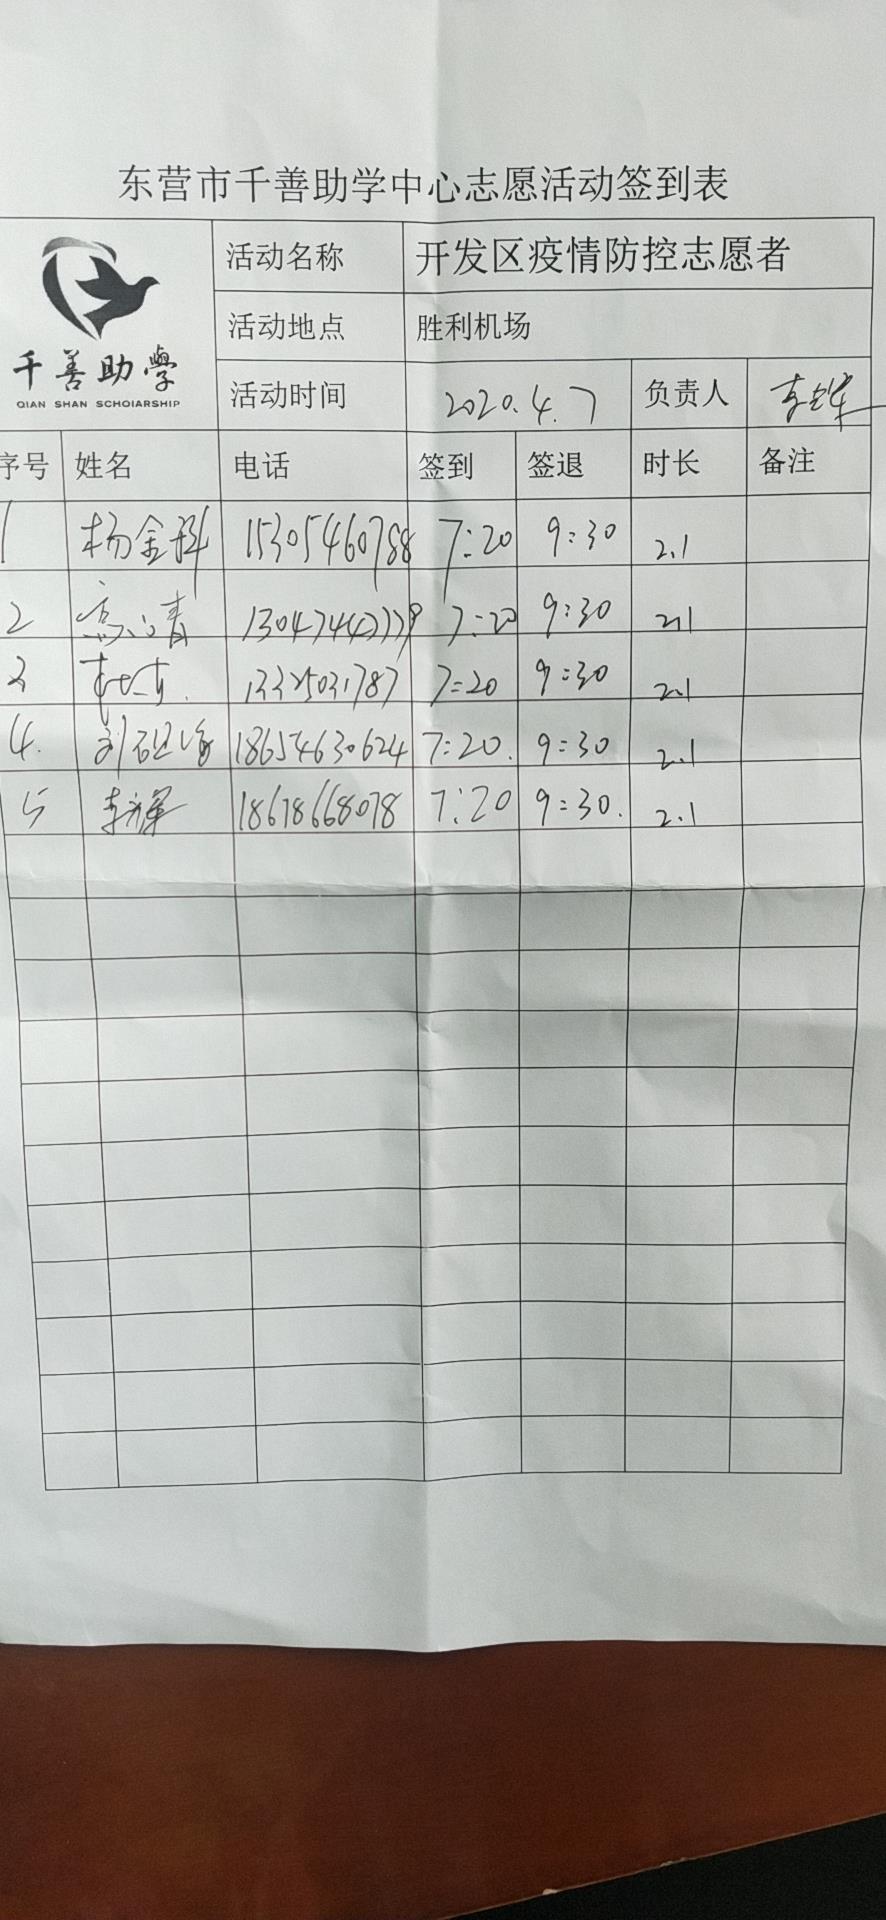 东营市千善助学中心志愿活动签到表
千善助學
QIAN SHAN SCHOIARSHIP
活动名称 开发区疫情防控志愿者
活动地点 胜利机场
活动时间 2020.4.7 负责人
序号 姓名 电话 签到 签退 时长 备注
1 杨金科 15305460788 7:20 9:30 2.1
2 7:20 9:30 2.1
3 13325031787 7:20 9:30 2.1
4. 刘 18654630624 7:20. 9:30 2.1
5 李辉 18678668078 7:20 9:30. 2.1